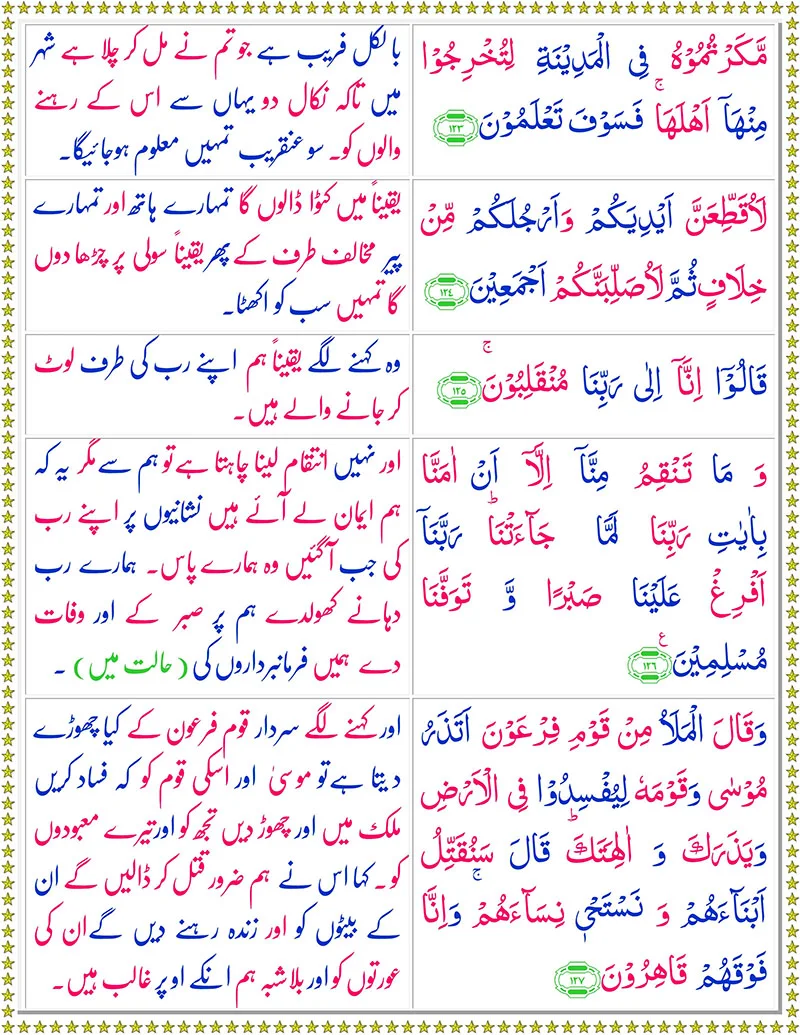 مَّكَرْتُمُوْهُ فِى الْمَدِيْنَةِ لِتُخْرِجُوْا
مِنْهَاۤ اَهْلَهَا ۚ فَسَوْفَ تَعْلَمُوْنَ ﴿۱۲۳﴾
بالکل فریب ہے جو تم نے مل کر چلا ہے شہر
میں تاکہ نکال دو یہاں سے اس کے رہنے
والوں کو۔ سو عنقریب تمہیں معلوم ہوجائیگا۔
لَاُقَطِّعَنَّ اَيْدِيَكُمْ وَاَرْجُلَكُمْ مِّنْ
خِلَافٍ ثُمَّ لَاُصَلِّبَنَّكُمْ اَجْمَعِيْنَ ﴿۱۲٤﴾
یقیناً میں کٹوا ڈالوں گا تمہارے ہاتھ اور تمہارے
پیر مخالف طرف کے پھر یقیناً سولی پر چڑھا دوں
گا تمہیں سب کو اکھٹا۔
قَالُوْۤا اِنَّاۤ اِلٰى رَبِّنَا مُنْقَلِبُوْنَ ۚ ﴿۱۲۵﴾
وہ کہنے لگے یقیناً ہم اپنے رب کی طرف لوٹ
کر جانے والے ہیں۔
وَ مَا تَنْقِمُ مِنَّاۤ اِلَّاۤ اَنْ اٰمَنَّا
بِاٰيٰتِ رَبِّنَا لَمَّا جَآءَتْنَا ؕ رَبَّنَاۤ
اَفْرِغْ عَلَيْنَا صَبْرًا وَّ تَوَفَّنَا
مُسْلِمِيْنَ ﴿۱۲٦﴾ ع
اور نہیں انتقام لینا چاہتا ہے تو ہم سے مگر یہ کہ
ہم ایمان لے آئے ہیں نشانیوں پر اپنے رب
کی جب آگئیں وہ ہمارے پاس۔ ہمارے رب
دہانے کھولدے ہم پر صبر کے اور وفات
دے ہمیں فرمانبرداروں کی (حالت میں)۔
وَقَالَ الْمَلَاُ مِنْ قَوْمِ فِرْعَوْنَ اَتَذَرُ
مُوْسٰى وَقَوْمَهٗ لِيُفْسِدُوْا فِى الْاَرْضِ
وَيَذَرَكَ وَ اٰلِهَتَكَ ؕ قَالَ سَنُقَتِّلُ
اَبْنَآءَهُمْ وَ نَسْتَحْىٖ نِسَآءَهُمْ ۚ وَاِنَّا
فَوْقَهُمْ قَاهِرُوْنَ ﴿۱۲۷﴾
اور کہنے لگے سردار قوم فرعون کے کیا چھوڑے
دیتا ہے تو موسیٰ اور اسکی قوم کو کہ فساد کریں
ملک میں اور چھوڑ دیں تجھ کو اور تیرے معبودوں
کو۔ کہا اس نے ہم ضرور قتل کر ڈالیں گے ان
کے بیٹوں کو اور زندہ رہنے دیں گے ان کی
عورتوں کو اور بلاشبہ ہم انکے اوپر غالب ہیں۔